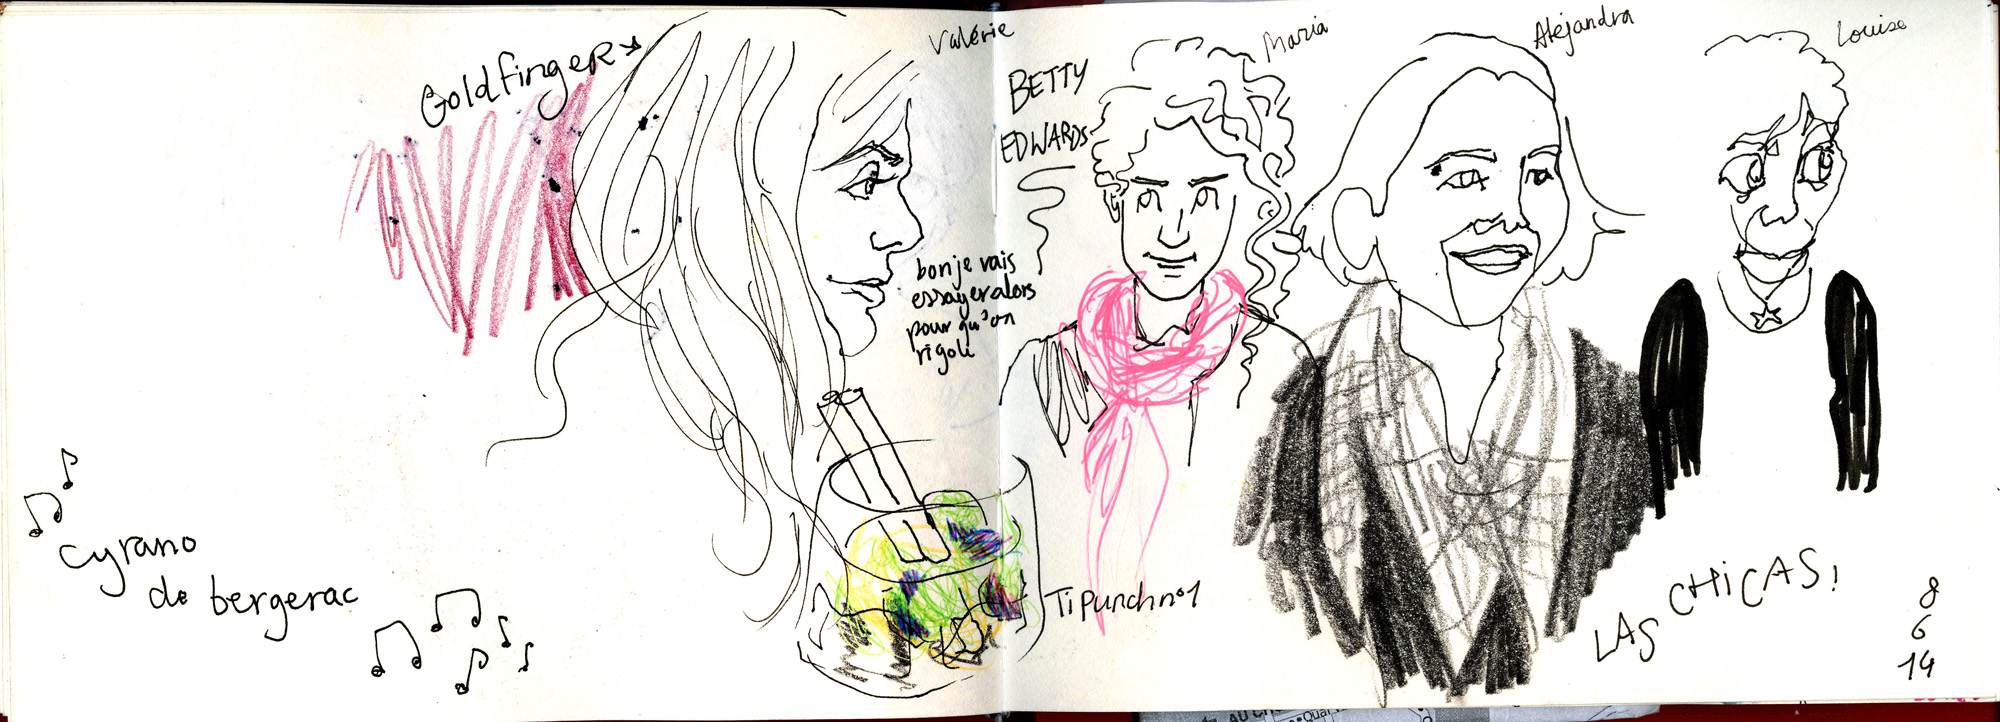 Goldfinger
Valérie
BETTY
EDWARDS
Maria
Alejandra
Louise
bon je vais
essayer alors
pour qu'on
rigole
Cyrano
de bergerac
Ti punch n°1
LAS CHICAS!
8
6
14